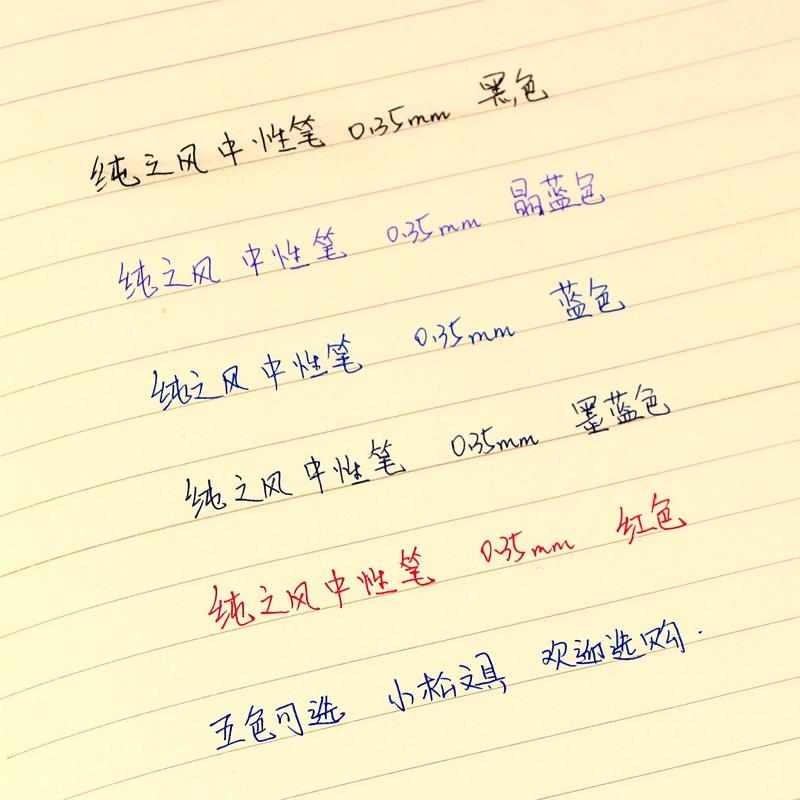 纯之风中性笔 0.35mm 黑色
纯之风 中性笔 0.35mm 晶蓝色
纯之风 中性笔 0.35mm 蓝色
纯之风 中性笔 0.35mm 墨蓝色
纯之风中性笔 0.35mm 红色
五色可选 小松文具 欢迎选购.